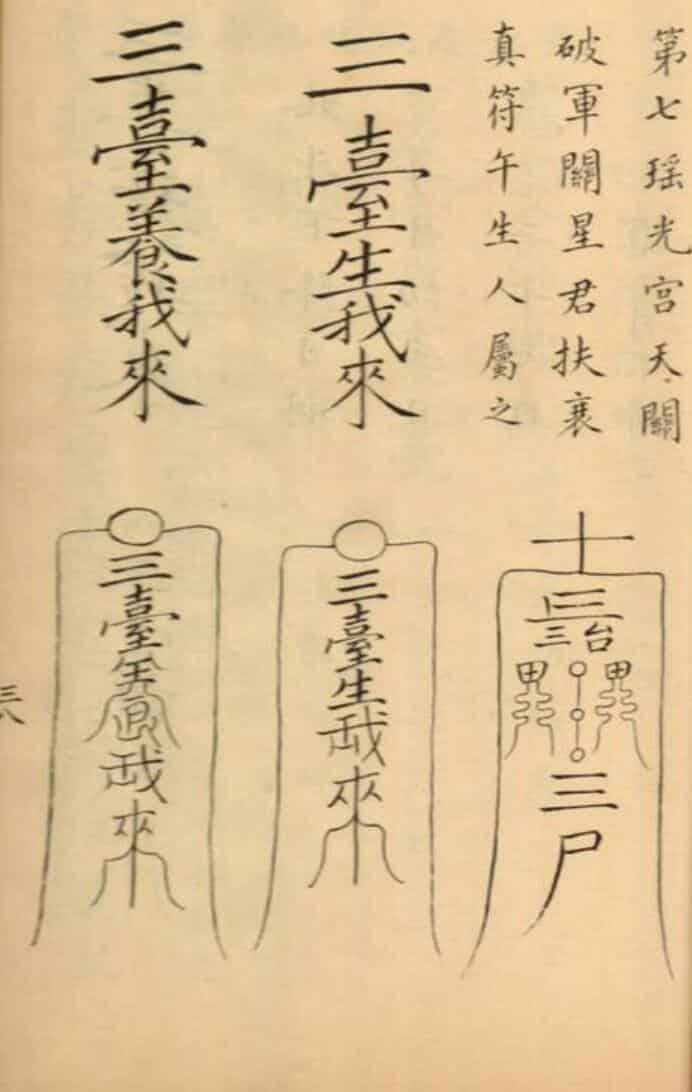 第七瑶光宫天關
破軍關星君扶衰
真符午生人屬之
三臺生我來
三臺養我來
十
三
三台
三尸
三臺生我來
三臺
我來
三八